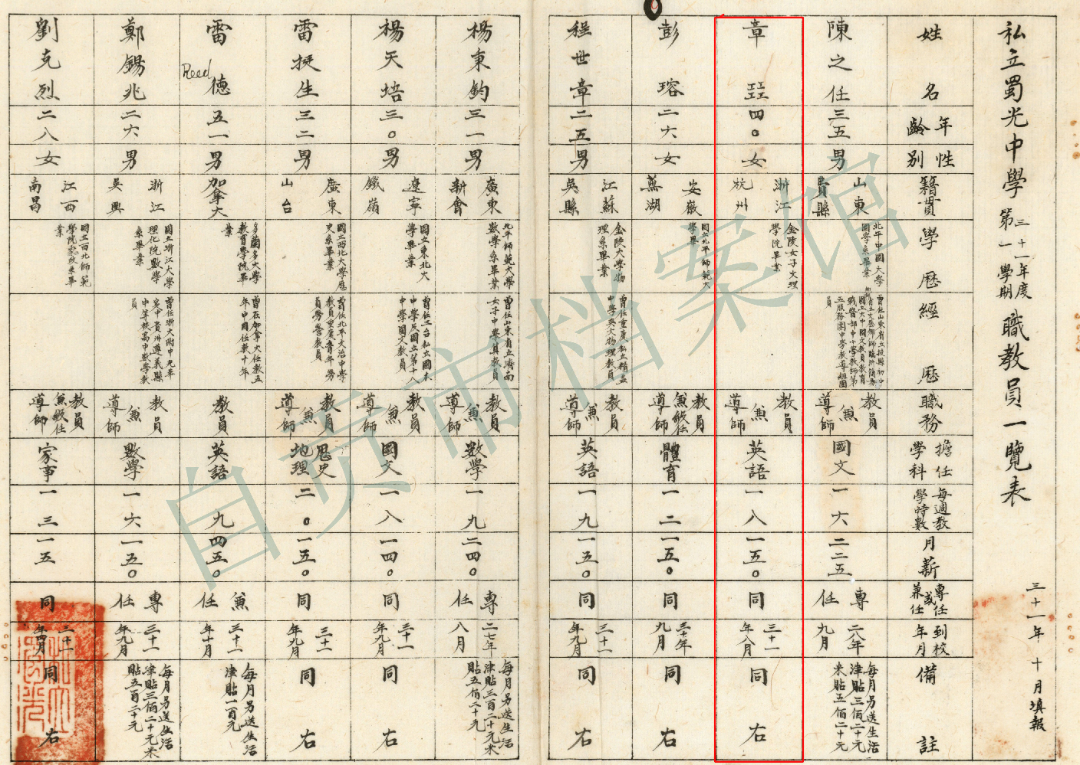 私立蜀光中學 三十一年度第一學期 職教員一覽表
三十一年十月填報
姓名
年齡
性別
籍貫
學歷
經歷
職務
擔任學科
每週教學時數
月薪
專任或兼任
到校年月
備註
陳之任
三五
男
山東
國文
一六
二二五
專任
二八年九月
每月另送生活津貼三佰二十元米貼五佰二十元
章亞
四〇
女
浙江杭州
金陵女子文理學院畢業
教員兼導師
英語
一八
一五〇
同
三十一年八月
同右
彭瑢
二六
女
安徽蕪湖
國立北平師範大學畢業
教員兼級任導師
體育
一二
一五〇
同
三十年九月
同右
程世章
二五
男
江蘇吳縣
金陵大學物理系畢業
教員兼導師
英語
一九
一五〇
同
三十一年九月
同右
楊東鈞
三一
男
廣東新會
北平師範大學數學系畢業
教員兼導師
數學
一九
二四〇
專任
二七年八月
每月另送生活津貼三百二十元米貼五佰二十元
楊天培
三〇
男
遼寧鐵嶺
國立東北大學畢業
教員兼導師
國文
一八
一四〇
同
三十一年九月
同右
雷挺生
三二
男
廣東台山
教員兼導師
歷史地理
二〇
一五〇
同
三十一年九月
同右
雷德
Reed
五一
男
加拿大
多倫多大學教育學院畢業
曾在加拿大任教五年中國任教十年
教員
英語
九
四五〇
兼任
三十一年十月
每月另送生活津貼一百元
鄭錫兆
二六
男
浙江吳興
國立浙江大學理化院數學系畢業
教員導師
數學
一六
一五〇
專任
三十一年九月
每月另送生活津貼三佰二十元米貼五百二十元
劉克烈
二八
女
江西南昌
國立西北師範學院家政系畢業
教員兼級任導師
家事
一三
一五
同
同右
自贡市档案馆